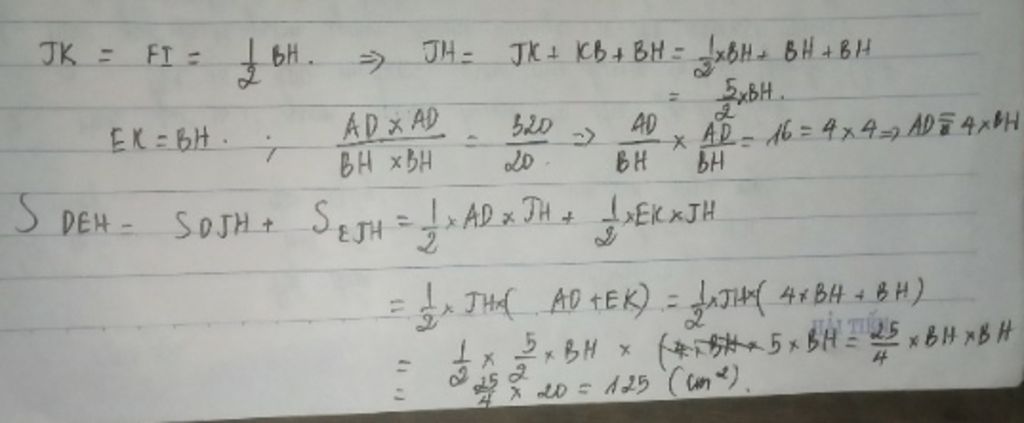 JK = FI = 1/2 BH. => JH = JK + KB + BH = 1/2 x BH + BH + BH
= 5/2 x BH.
EK = BH. ; AD x AD / BH x BH = 320/20. => AD/BH x AD/BH = 16 = 4 x 4 => AD = 4 x BH
S DEH = S DJH + S EJH = 1/2 x AD x JH + 1/2 x EK x JH
= 1/2 x JH x ( AD + EK) = 1/2 x JH x ( 4 x BH + BH )
HẢI TIẾN
= 1/2 x 5/2 x BH x 5 x BH = 25/4 x BH x BH
= 25/4 x 20 = 125 (cm²).